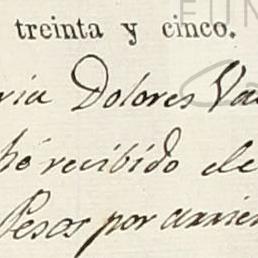 treinta y cinco.
ria Dolores Va
hé recibido de
Pesos por arrien